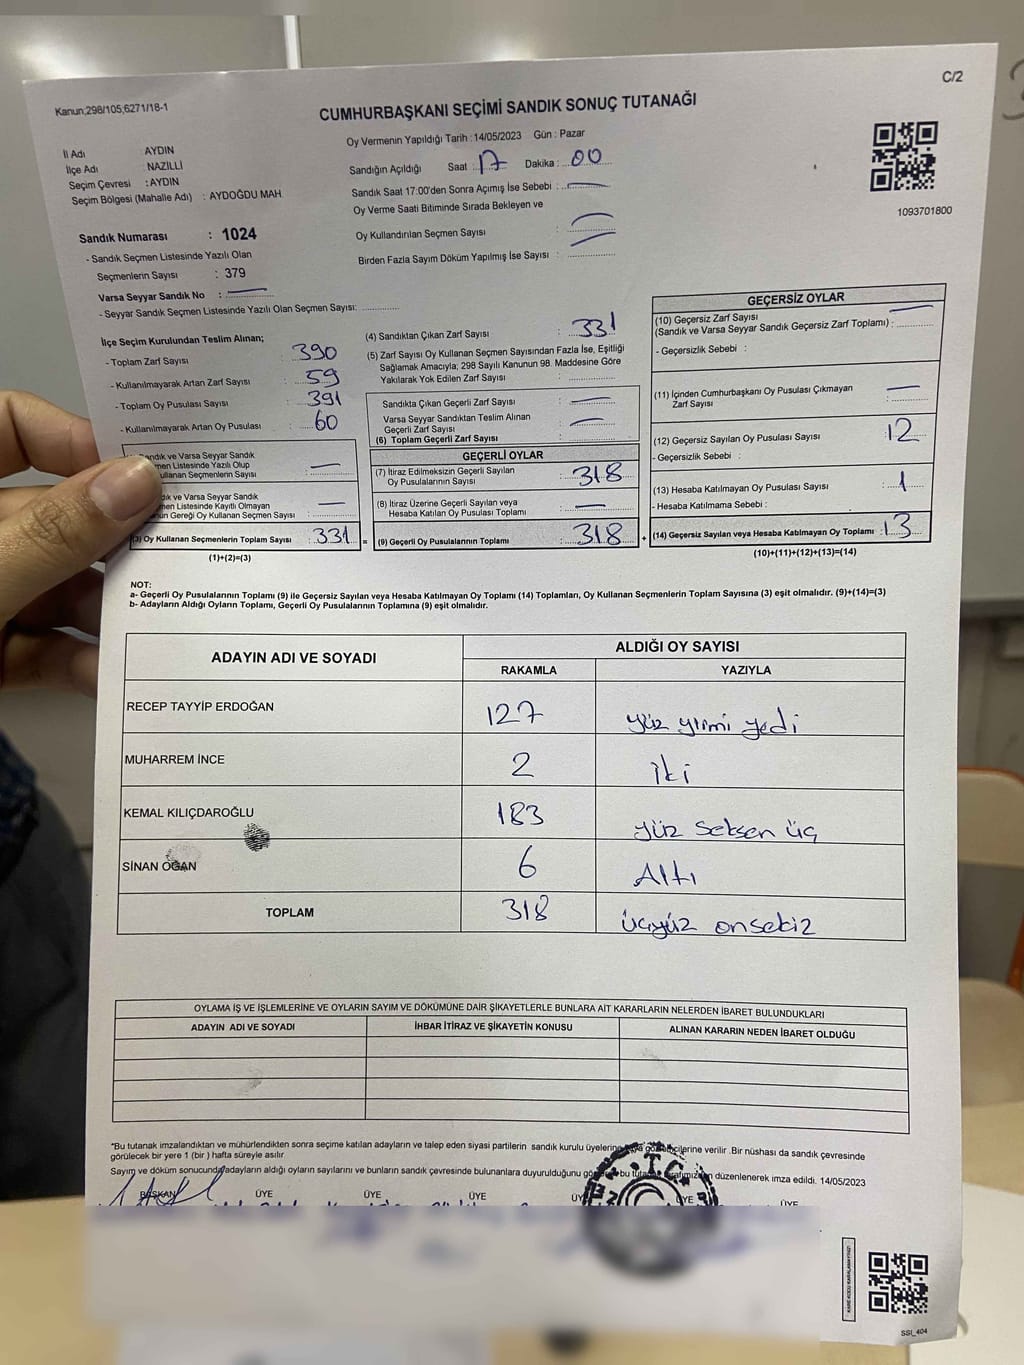 C/2
Kanun;298/105;6271/18-1
CUMHURBAŞKANI SEÇİMİ SANDIK SONUÇ TUTANAĞI
İl Adı AYDIN
İlçe Adı : NAZİLLİ
Seçim Çevresi : AYDIN
Seçim Bölgesi (Mahalle Adı) : AYDOĞDU MAH
Oy Vermenin Yapıldığı Tarih : 14/05/2023 Gün : Pazar
Sandığın Açıldığı Saat : 17 Dakika : 00
Sandık Saat 17:00'den Sonra Açımış İse Sebebi :
Oy Verme Saati Bitiminde Sırada Bekleyen ve
Oy Kullandırılan Seçmen Sayısı :
Birden Fazla Sayım Döküm Yapılmış İse Sayısı :
1093701800
Sandık Numarası : 1024
- Sandık Seçmen Listesinde Yazılı Olan
Seçmenlerin Sayısı : 379
Varsa Seyyar Sandık No :
- Seyyar Sandık Seçmen Listesinde Yazılı Olan Seçmen Sayısı:
İlçe Seçim Kurulundan Teslim Alınan;
- Toplam Zarf Sayısı : 390
- Kullanılmayarak Artan Zarf Sayısı : 59
- Toplam Oy Pusulası Sayısı : 391
- Kullanılmayarak Artan Oy Pusulası : 60
Sandık ve Varsa Seyyar Sandık
men Listesinde Yazılı Olup
ullanan Seçmenlerin Sayısı
dık ve Varsa Seyyar Sandık
men Listesinde Kayıtlı Olmayan
nun Gereği Oy Kullanan Seçmen Sayısı :
(3) Oy Kullanan Seçmenlerin Toplam Sayısı : 331 =
(1)+(2)=(3)
(4) Sandıktan Çıkan Zarf Sayısı : 331
(5) Zarf Sayısı Oy Kullanan Seçmen Sayısından Fazla İse, Eşitliği
Sağlamak Amacıyla; 298 Sayılı Kanunun 98. Maddesine Göre
Yakılarak Yok Edilen Zarf Sayısı :
Sandıkta Çıkan Geçerli Zarf Sayısı :
Varsa Seyyar Sandıktan Teslim Alınan
Geçerli Zarf Sayısı :
(6) Toplam Geçerli Zarf Sayısı
GEÇERLİ OYLAR
(7) İtiraz Edilmeksizin Geçerli Sayılan
Oy Pusulalarının Sayısı : 318
(8) İtiraz Üzerine Geçerli Sayılan veya
Hesaba Katılan Oy Pusulası Toplamı :
(9) Geçerli Oy Pusulalarının Toplamı : 318 +
GEÇERSİZ OYLAR
(10) Geçersiz Zarf Sayısı
(Sandık ve Varsa Seyyar Sandık Geçersiz Zarf Toplamı) :
- Geçersizlik Sebebi :
(11) İçinden Cumhurbaşkanı Oy Pusulası Çıkmayan
Zarf Sayısı :
(12) Geçersiz Sayılan Oy Pusulası Sayısı : 12
- Geçersizlik Sebebi :
(13) Hesaba Katılmayan Oy Pusulası Sayısı : 1
- Hesaba Katılmama Sebebi :
(14) Geçersiz Sayılan veya Hesaba Katılmayan Oy Toplamı : 13
(10)+(11)+(12)+(13)=(14)
NOT:
a- Geçerli Oy Pusulalarının Toplamı (9) ile Geçersiz Sayılan veya Hesaba Katılmayan Oy Toplamı (14) Toplamları, Oy Kullanan Seçmenlerin Toplam Sayısına (3) eşit olmalıdır. (9)+(14)=(3)
b- Adayların Aldığı Oyların Toplamı, Geçerli Oy Pusulalarının Toplamına (9) eşit olmalıdır.
ADAYIN ADI VE SOYADI ALDIĞI OY SAYISI
RAKAMLA YAZIYLA
RECEP TAYYİP ERDOĞAN 127 yüz yirmi yedi
MUHARREM İNCE 2 iki
KEMAL KILIÇDAROĞLU 183 yüz seksen üç
SİNAN OĞAN 6 Altı
TOPLAM 318 üçyüz onsekiz
OYLAMA İŞ VE İŞLEMLERİNE VE OYLARIN SAYIM VE DÖKÜMÜNE DAİR ŞİKAYETLERLE BUNLARA AİT KARARLARIN NELERDEN İBARET BULUNDUKLARI
ADAYIN ADI VE SOYADI İHBAR İTİRAZ VE ŞİKAYETİN KONUSU ALINAN KARARIN NEDEN İBARET OLDUĞU
*Bu tutanak imzalandıktan ve mühürlendikten sonra seçime katılan adayların ve talep eden siyasi partilerin sandık kurulu üyelerine veya gözlemcilerine verilir .Bir nüshası da sandık çevresinde
görülecek bir yere 1 (bir ) hafta süreyle asılır.
Sayım ve döküm sonucunda adayların aldığı oyların sayılarını ve bunların sandık çevresinde bulunanlara duyurulduğunu bu düzenlenerek imza edildi. 14/05/2023
BAŞKAN ÜYE ÜYE ÜYE ÜYE ÜYE ÜYE
T.C.
SSI_404